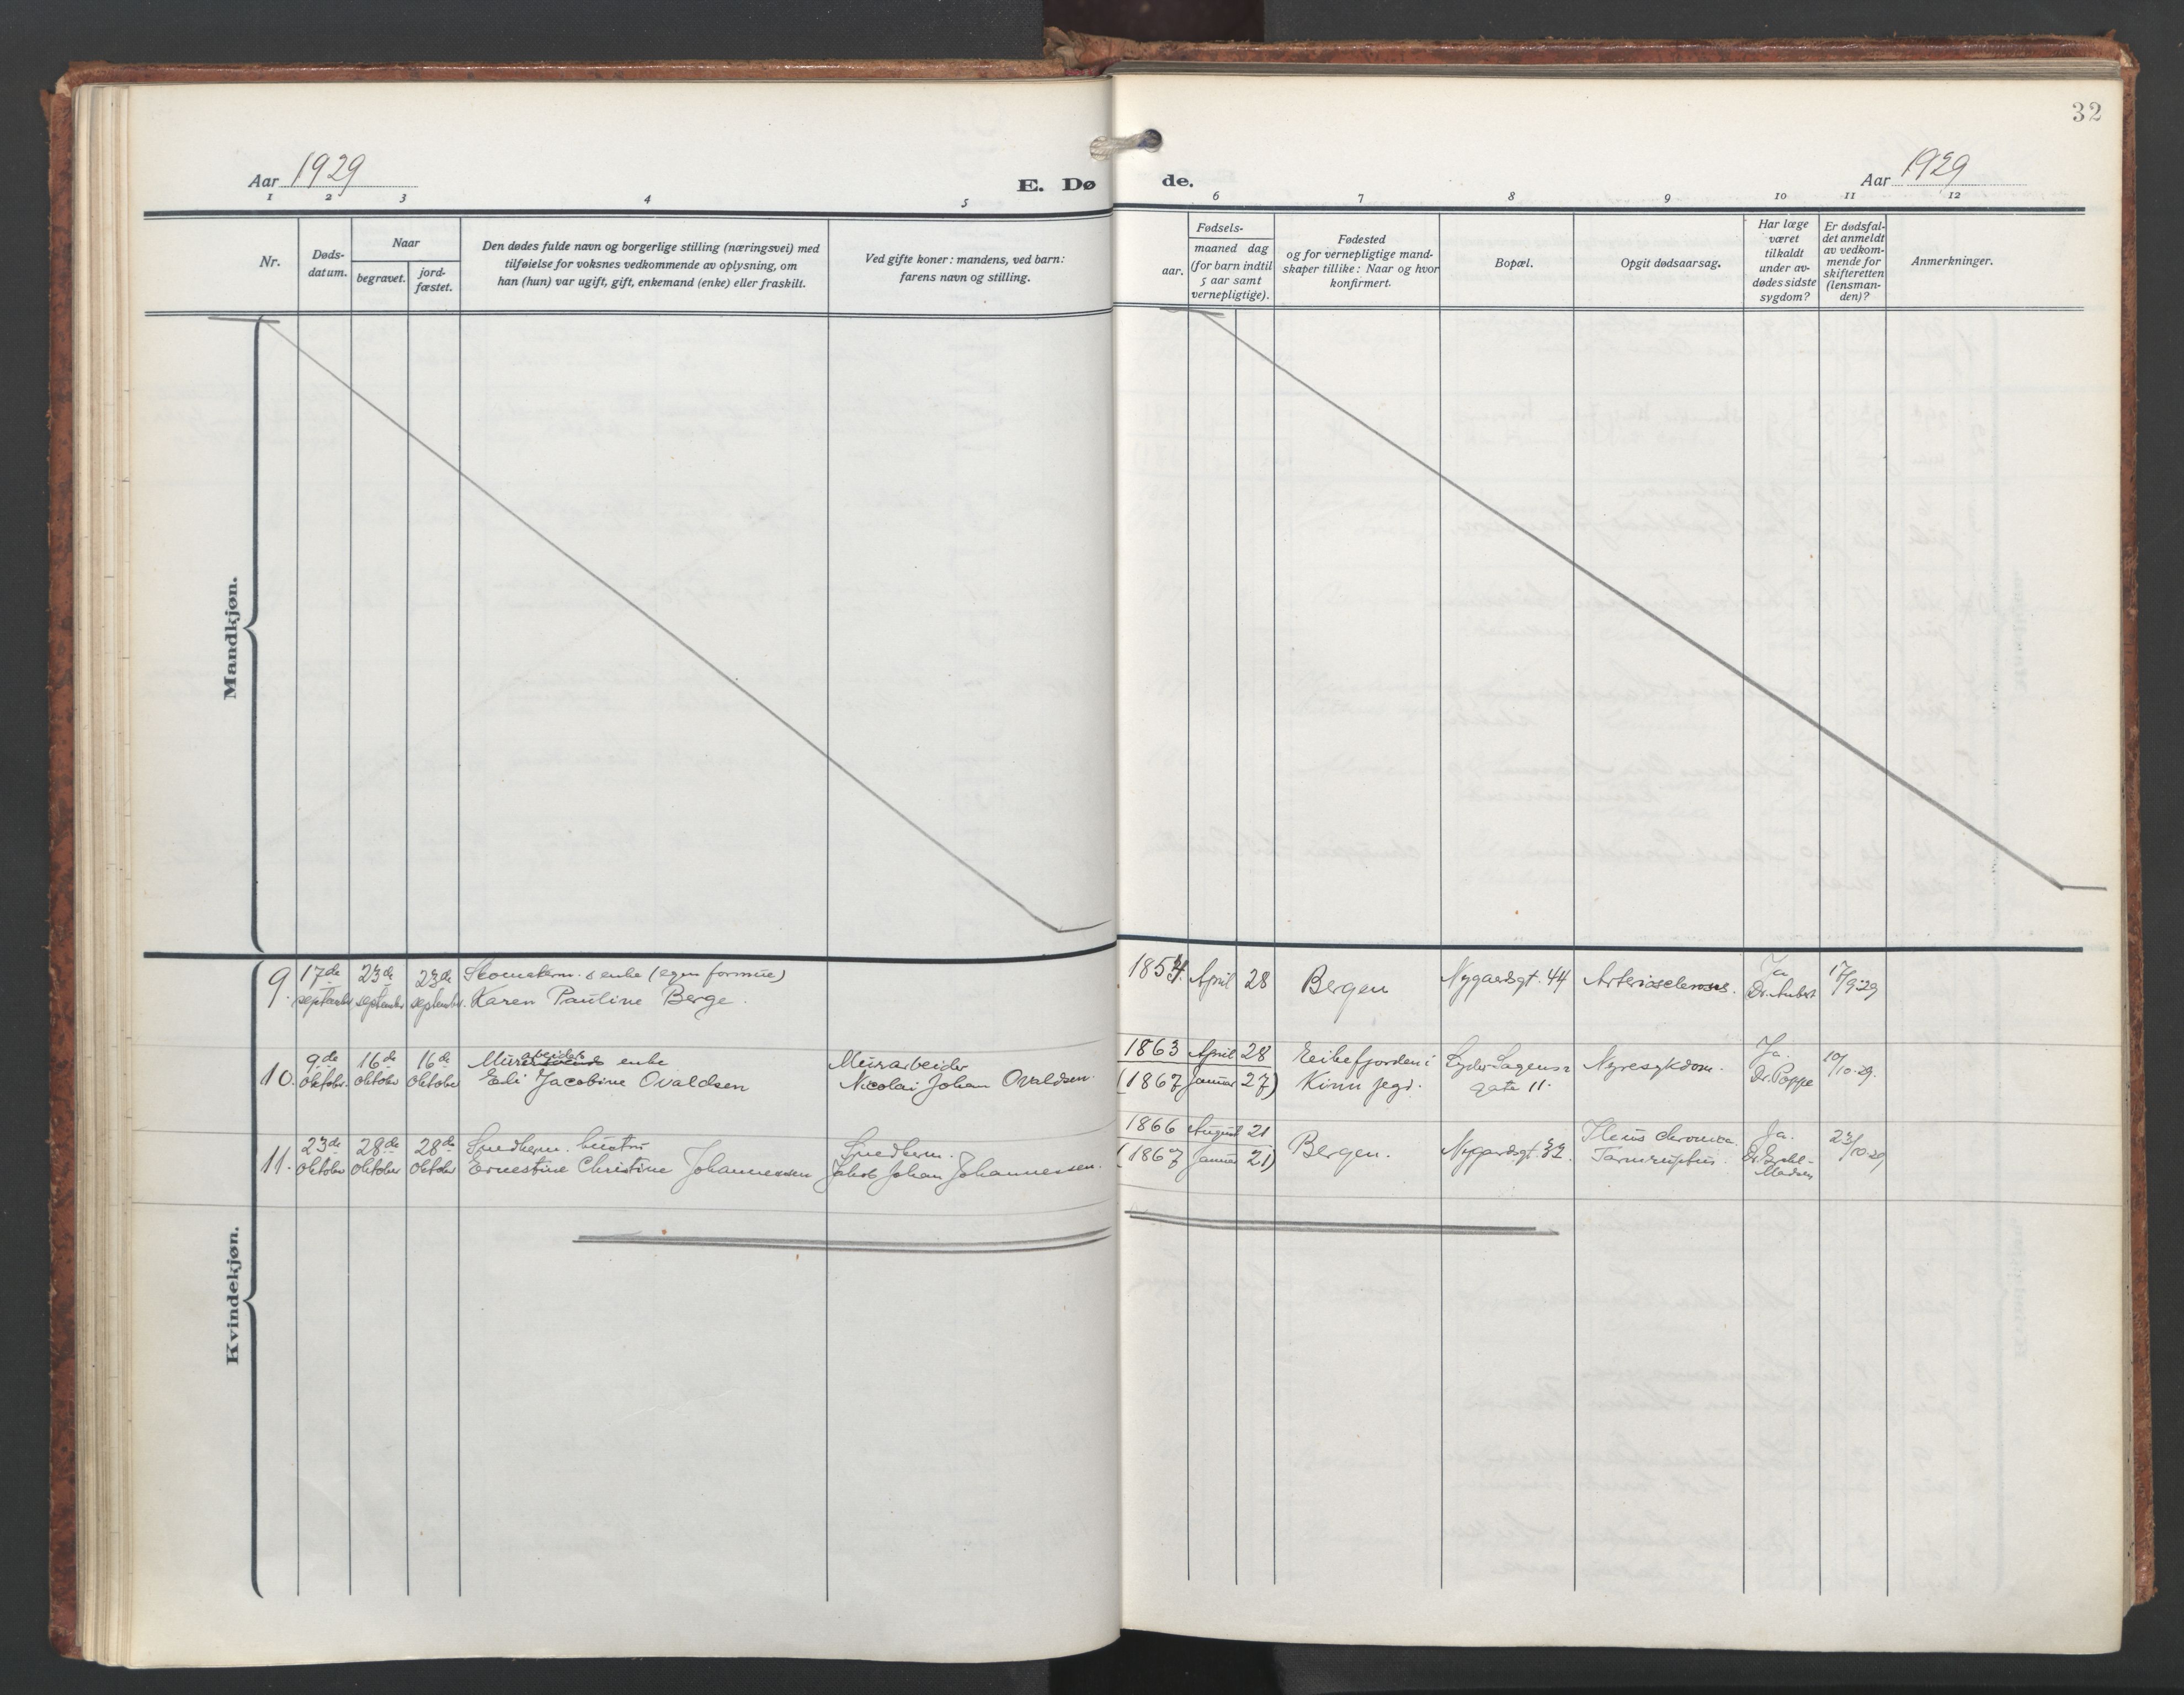 32
Aar 1929
E. Dø
de.
Aar 1929
1 2 3 4 5
6 7 8 9 10 11 12
Nr.
Døds-
datum.
Naar
begravet.
jord-
fæstet.
Den dødes fulde navn og borgerlige stilling (næringsvei) med
tilføielse for voksnes vedkommende av oplysning, om
han (hun) var ugift, gift, enkemand (enke) eller fraskilt.
Ved gifte koner: mandens, ved barn:
farens navn og stilling.
Fødsels-
aar.
maaned dag
(for barn indtil
5 aar samt
vernepligtige).
Fødested
og for vernepligtige mand-
skaper tillike: Naar og hvor
konfirmert.
Bopæl.
Opgit dødsaarsag.
Har læge
været
tilkaldt
under av-
dødes sidste
sygdom?
Er dødsfal-
det anmeldt
av vedkom-
mende for
skifteretten
(lensman-
den)?
Anmerkninger.
Mandkjøn.
Kvindekjøn.
9.
17de
september
23de
september
23de
september.
enke (egen formue)
Karen Pauline Berge.
1854. April 28
Bergen
Nygaardsgt. 44
Arteriosclerosis.
Ja
Dr. Aubert
17/9 29
10.
9de
oktober.
16de
oktober
16de
oktober
Murarbeider enke
Jacobine Ovaldsen
Murarbeider
Nicolai Johan Ovaldsen.
1863 April 28
(1867 Januar 27)
Eikefjorden i
Kinn pegd.
Lyder Sagens
gate 11.
Nyresykdom.
Ja.
Dr. Poppe
10/10 29.
11.
23de
oktober
28de
oktober
28de
oktober
Smedherm. hustru
Ernestine Christine Johannessen
Smedherm.
Jakob Johan Johannessen.
1866 August 21
(1867 Januar 21)
Bergen.
Nygaardsgt. 32.
Ileus chronica.
Tarmruptur.
Ja.
Madsen
23/10 29